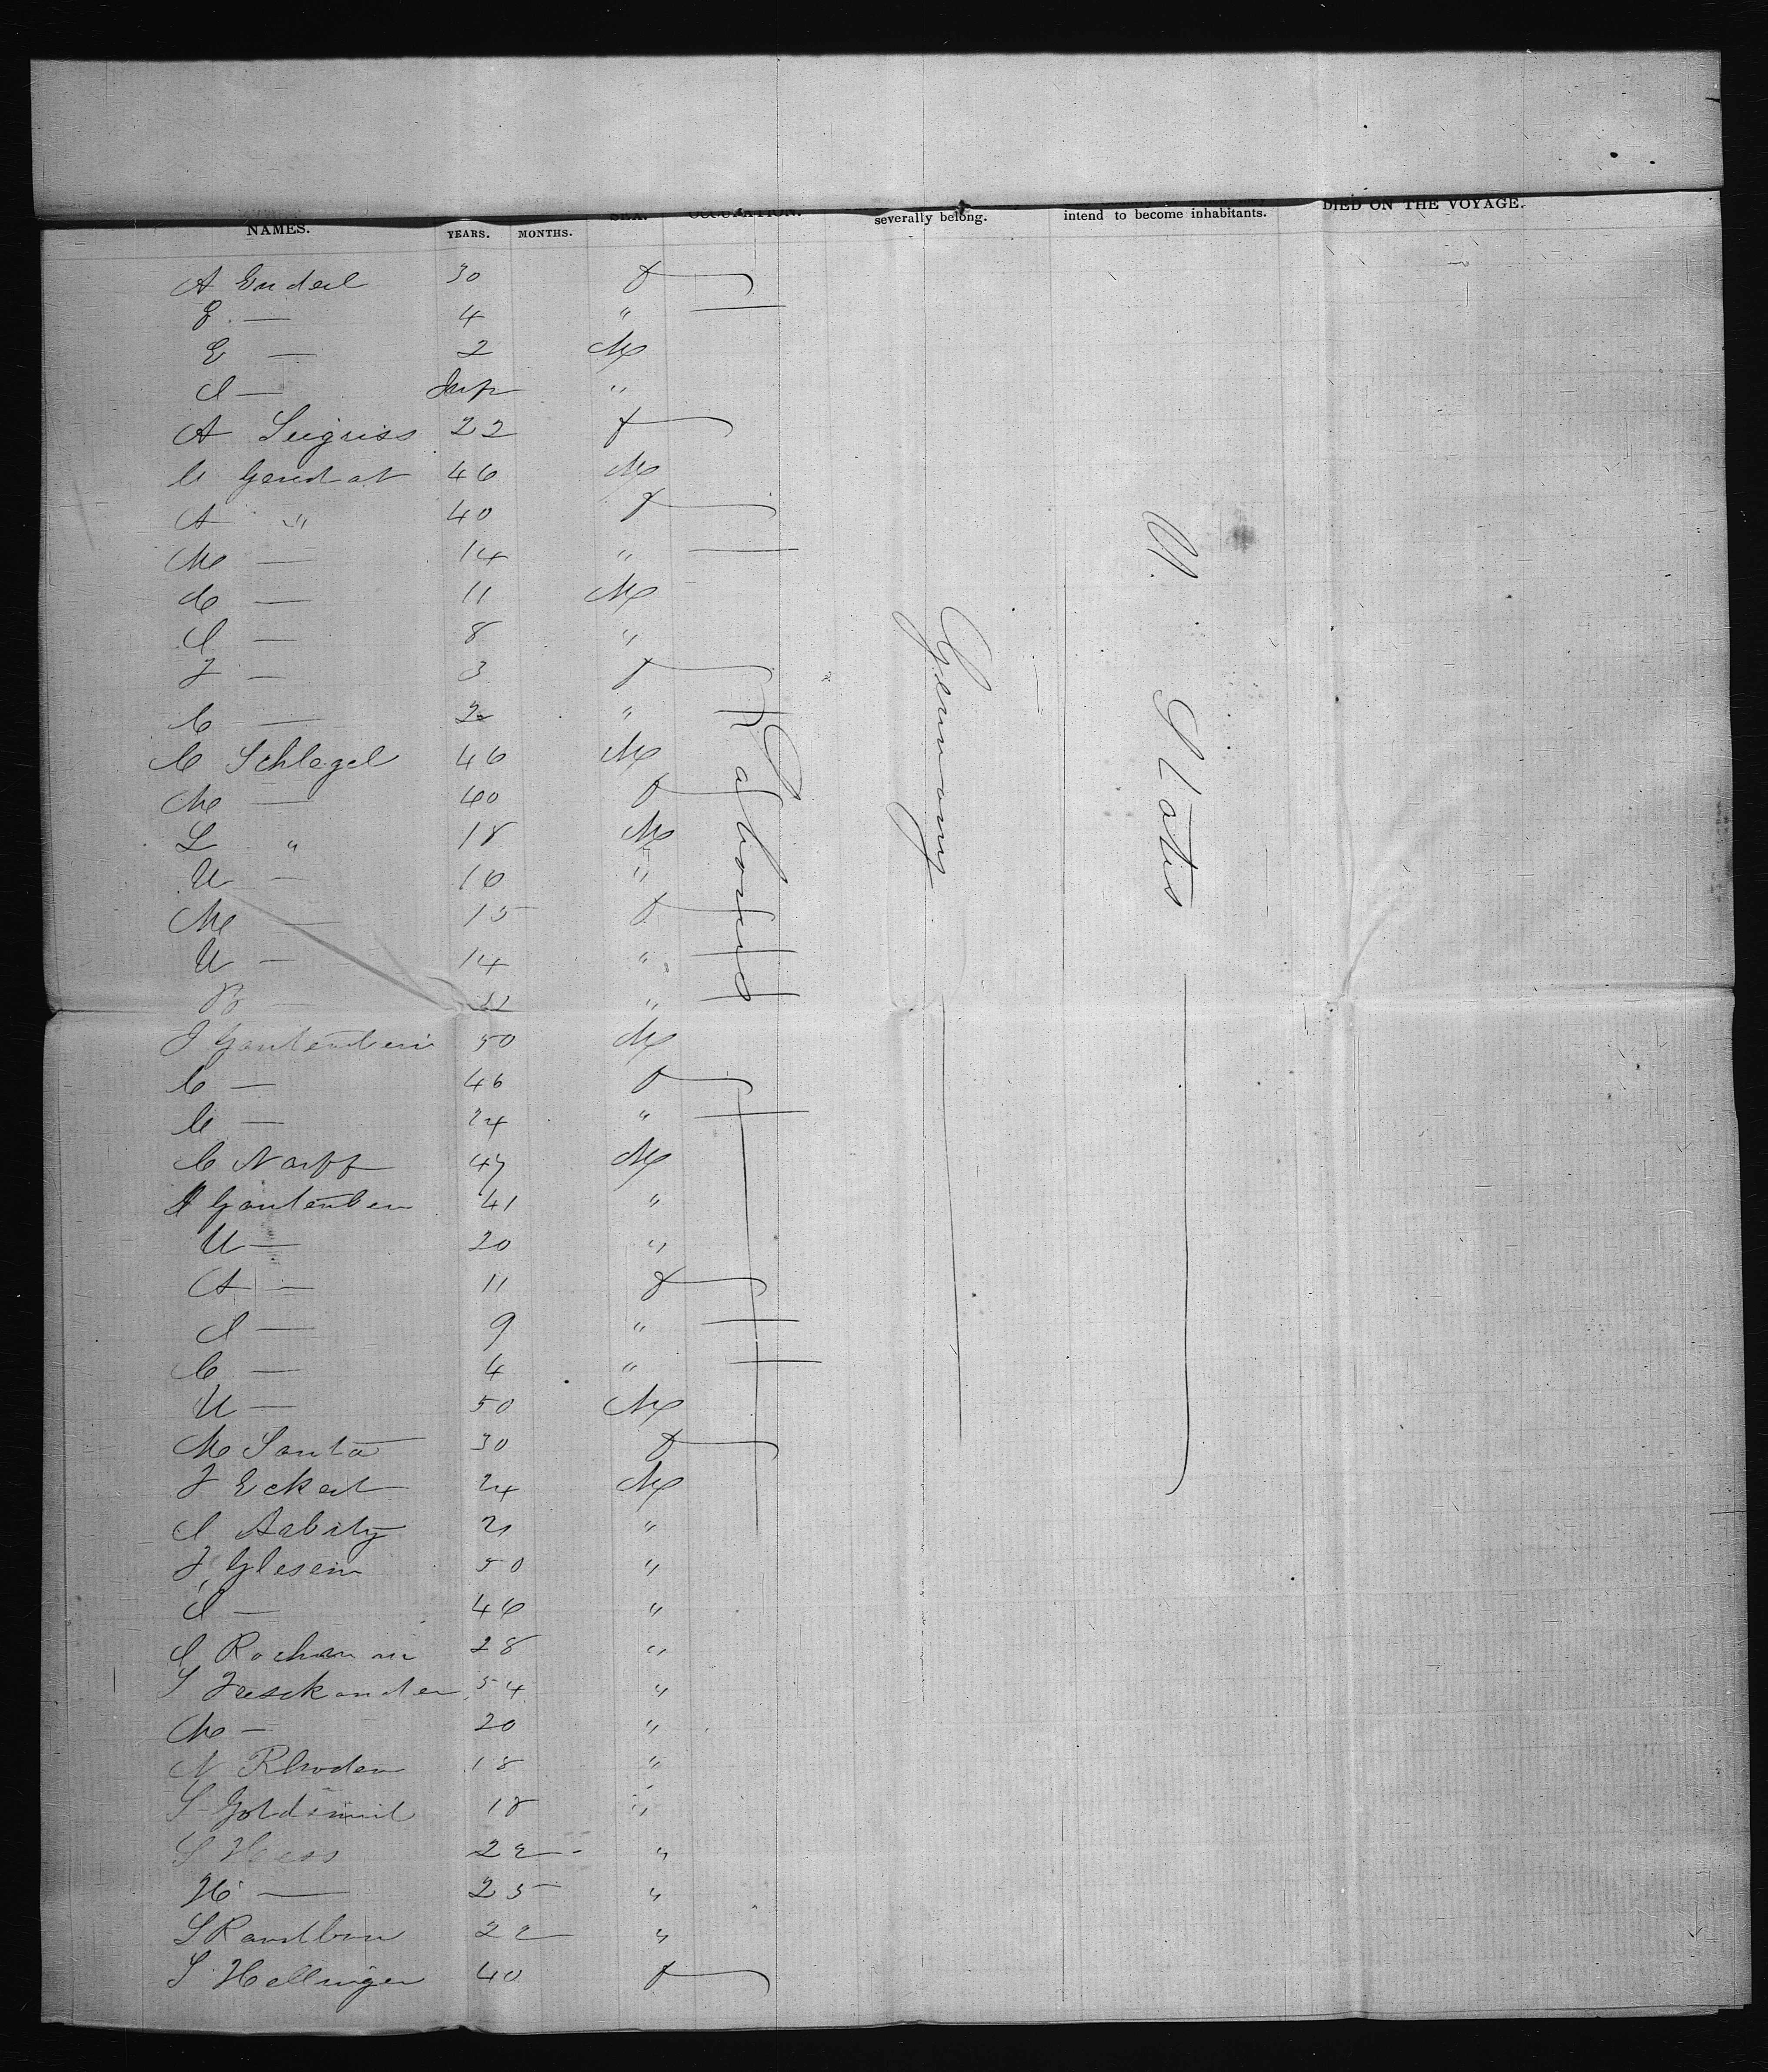 NAMES. YEARS. MONTHS. SEX. OCCUPATION. severally belong. intend to become inhabitants. DIED ON THE VOYAGE.
A Endeil 30 f
E — 4 "
E — 2 M
J — Inf "
A Seigriss 22 f
U Gendat 46 M
A " 40 f
M — 14 "
C — 11 M
J — 8 "
F — 3 f
C — 2 "
C Schlegel 46 M
M — 40 f
L " 18 M
U — 16 "
M — 15 f
U — 14 "
B — "
J Gantenbein 50 M
C — 46 f
U — 24 "
C Narff 47 M
A Gantenben 41 "
U — 20 "
A — 11 f
J — 9 "
C — 4 "
U — 50 M
M Santa 30 f
F Eckert 24 M
J 21 "
F Glesein 50 "
J — 46 "
J 28 "
S 54 "
M — 20 "
N Rhoden 18 "
S Goldsmit 18 "
S Hess 22 "
H — 25 "
S 22 "
S Hellinger 40 f
Labourers
Germany
U. States